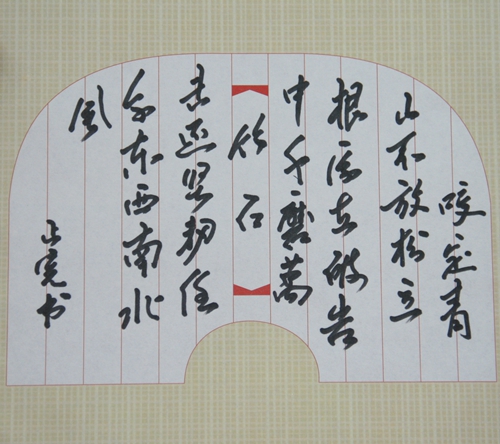 咬定青
山不放松立
根原在破岩
中千磨萬
竹石
击还坚韧任
尔东西南北
风
正宽书